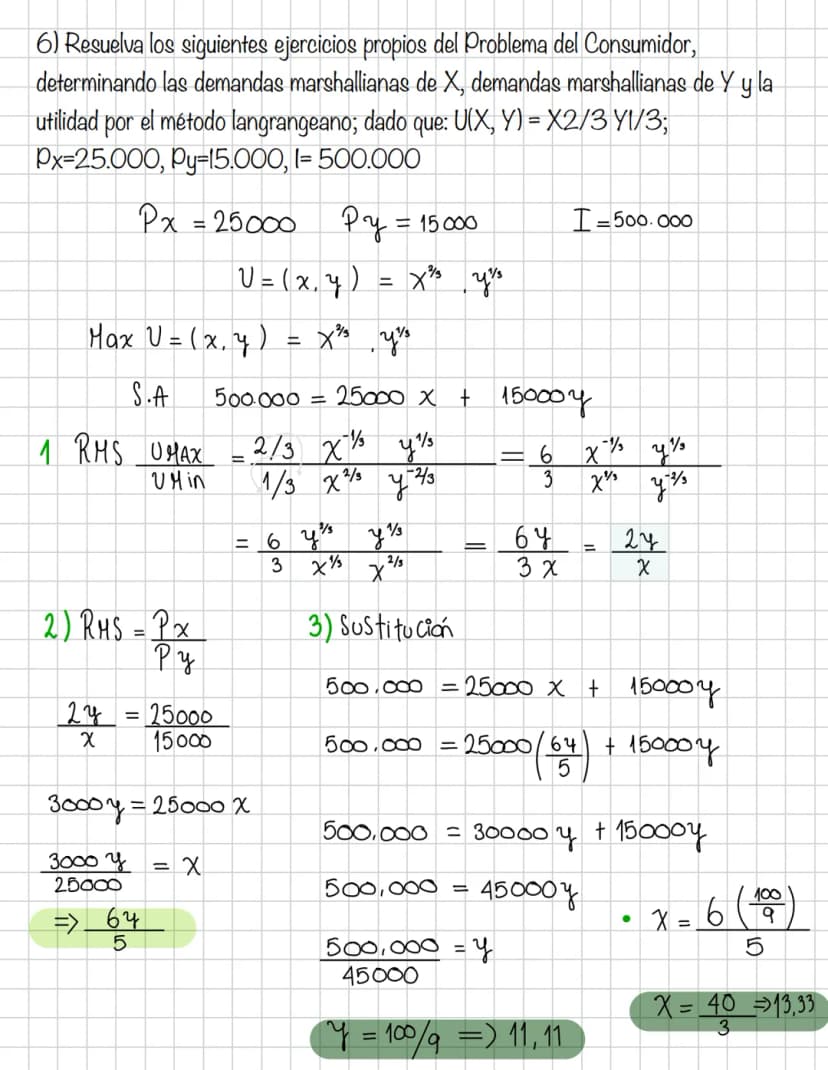 6) Resuelva los siguientes ejercicios propios del Problema del Consumidor,
determinando las demandas marshallianas de X, demandas marshallianas de Y y la
utilidad por el método langrangeano; dado que: U(X, Y) = X2/3 Y1/3;
Px=25.000, Py=15.000, I= 500.000
Px = 25000 Py = 15000 I = 500.000
U = (x, y) = x^2/3 . y^1/3
Max U = (x, y) = x^2/3 . y^1/3
S.A 500.000 = 25000 x + 15000y
1 RMS UMAX/UMin = 2/3 x^-1/3 y^1/3 / 1/3 x^2/3 y^-2/3 = 6 x^-1/3 y^1/3 / 3 x^2/3 y^-2/3
= 6 y^2/3 y^1/3 / 3 x^1/3 x^2/3 = 6y/3x = 2y/x
2) RMS = Px/Py
2y/x = 25000/15000
3000y = 25000 x
3000 y/25000 = x
=> 6y/5
3) Sustitución
500.000 = 25000 x + 15000y
500.000 = 25000 (6y/5) + 15000y
500.000 = 30000 y + 15000y
500,000 = 45000y
500,000/45000 = y
y = 100/9 => 11,11
• x = 6 (100/9)/5
x = 40/3 => 13,33